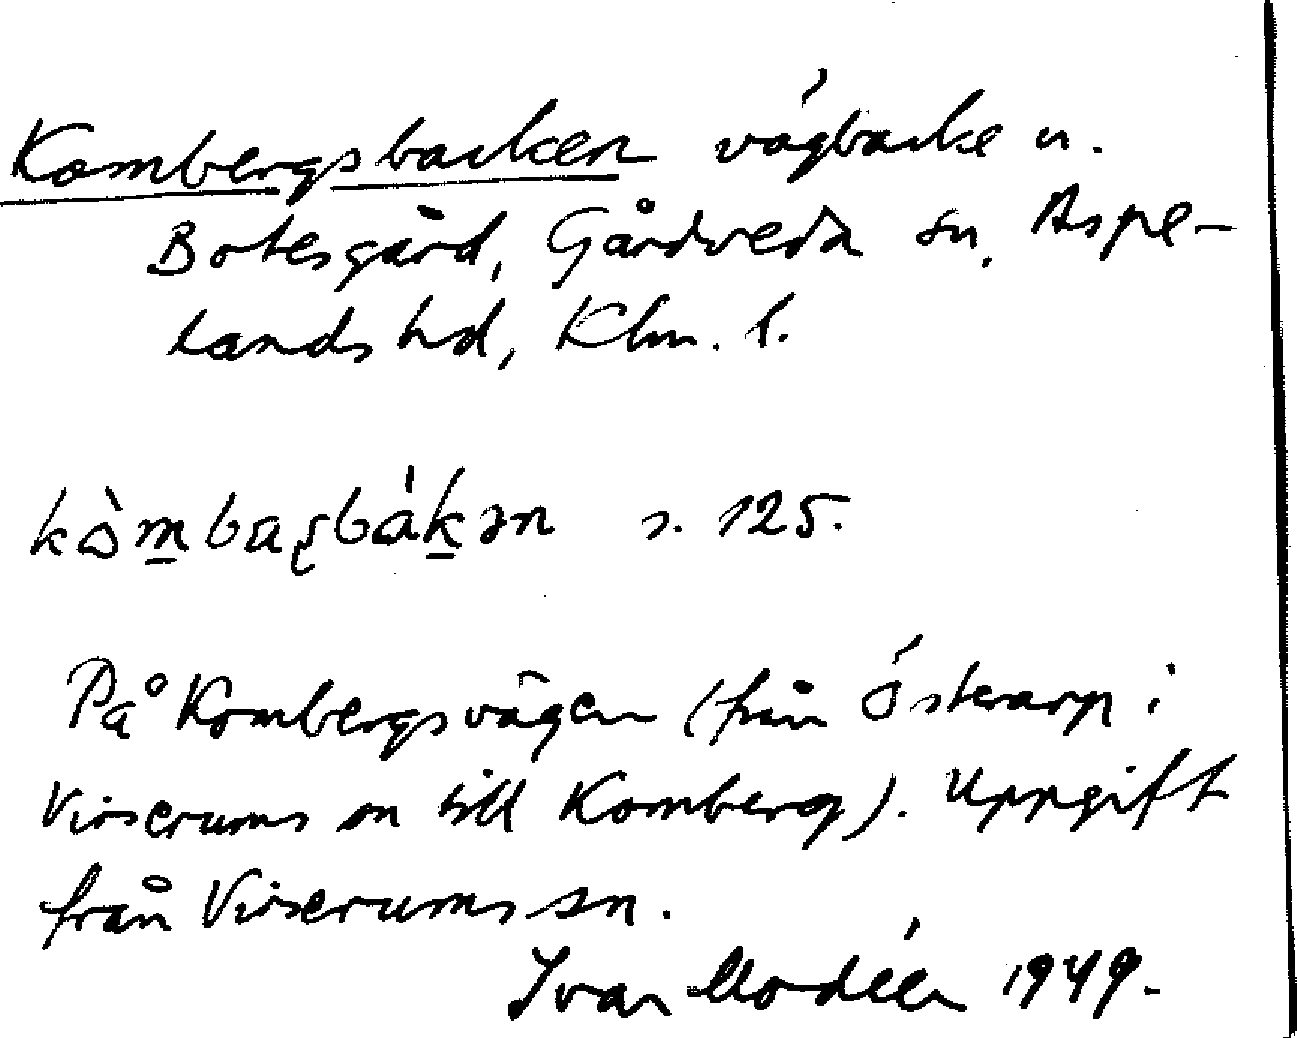 Kombergsbacken vägbacke n.
Botesgård, Gårdveda sn, Aspe-
lands hd, Klm. l.
kòm̲baʂbák̲ən s. 125.
På Kombergsvägen (från Östrarp i
Virserums sn till Komberg). Uppgift
från Virserums sn.
Ivar Modéer 1949.